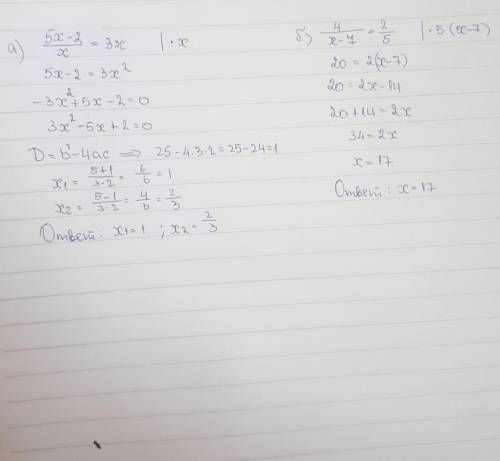 а) (5x-2)/x = 3x | · x
5x-2 = 3x²
-3x²+5x-2=0
3x²-5x+2=0
D=b²-4ac ⟹ 25-4·3·2=25-24=1
x₁ = (5+1)/(3·2) = 6/6 = 1
x₂ = (5-1)/(3·2) = 4/6 = 2/3
Ответ: x₁=1 ; x₂ = 2/3
б) 4/(x-7) = 2/5 | · 5(x-7)
20 = 2(x-7)
20 = 2x-14
20+14=2x
34=2x
x=17
Ответ: x=17